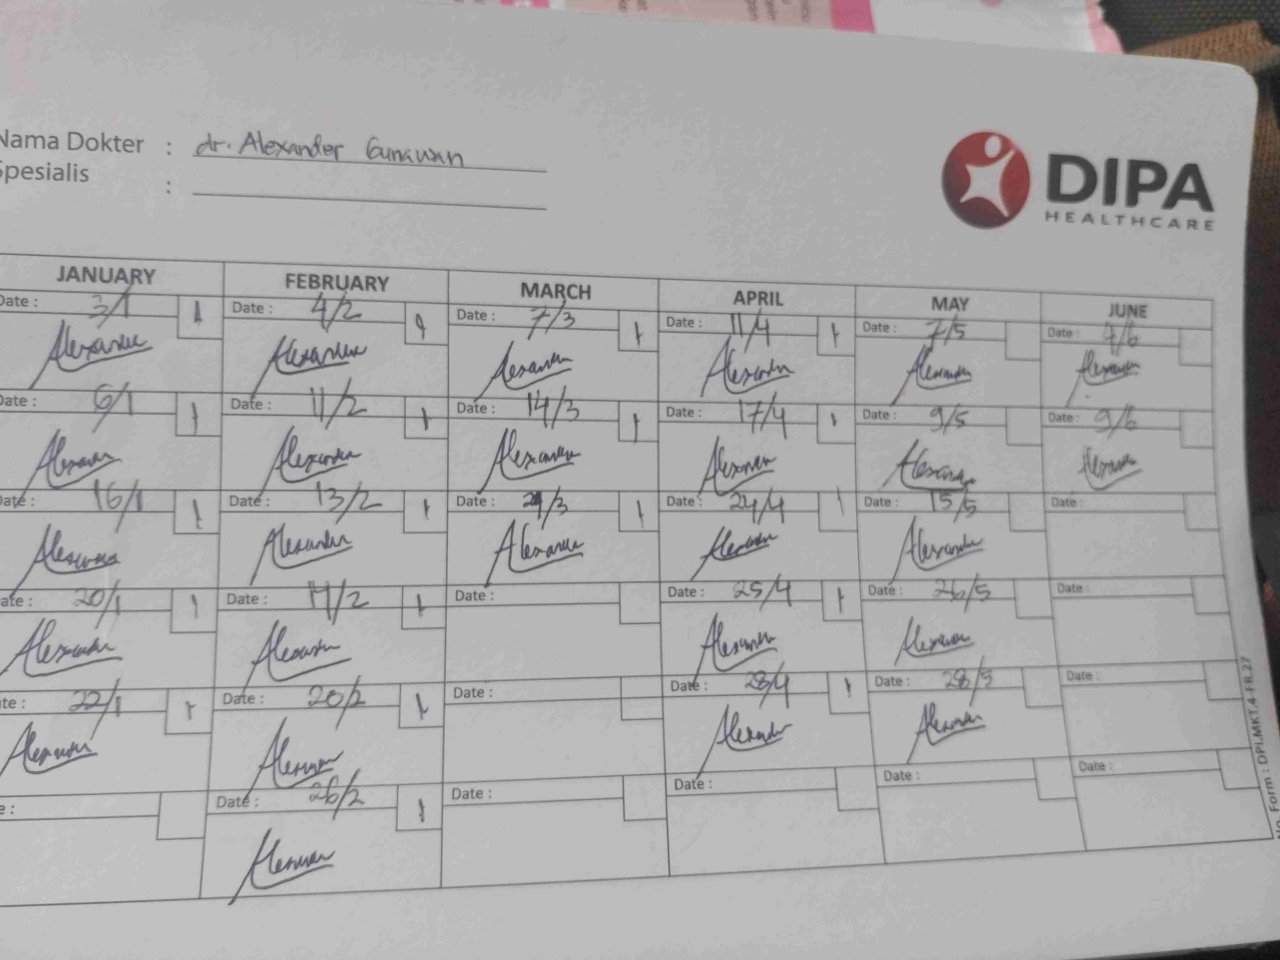 Nama Dokter : dr. Alexander Gunawan
Spesialis :
DIPA
HEALTHCARE
JANUARY FEBRUARY MARCH APRIL MAY JUNE
Date : 3/1 1 Date : 4/2 1 Date : 7/3 1 Date : 11/4 1 Date : 7/5 Date : 4/6
Alexander Alexander Alexander Alexander Alexander Alexander
Date : 6/1 1 Date : 11/2 1 Date : 14/3 1 Date : 17/4 1 Date : 9/5 Date : 9/6
Alexander Alexander Alexander Alexander Alexander Alexander
Date : 16/1 1 Date : 13/2 1 Date : /3 1 Date : 24/4 1 Date : 15/5 Date :
Alexander Alexander Alexander Alexander Alexander
Date : 20/1 1 Date : /2 1 Date : Date : 25/4 1 Date : 26/5 Date :
Alexander Alexander Alexander Alexander
Date : 22/1 1 Date : 20/2 1 Date : Date : 28/4 1 Date : 28/5 Date :
Alexander Alexander Alexander Alexander
Date : Date : 26/2 1 Date : Date : Date : Date :
Alexander
Form : DPI.MKT.4-FR.27